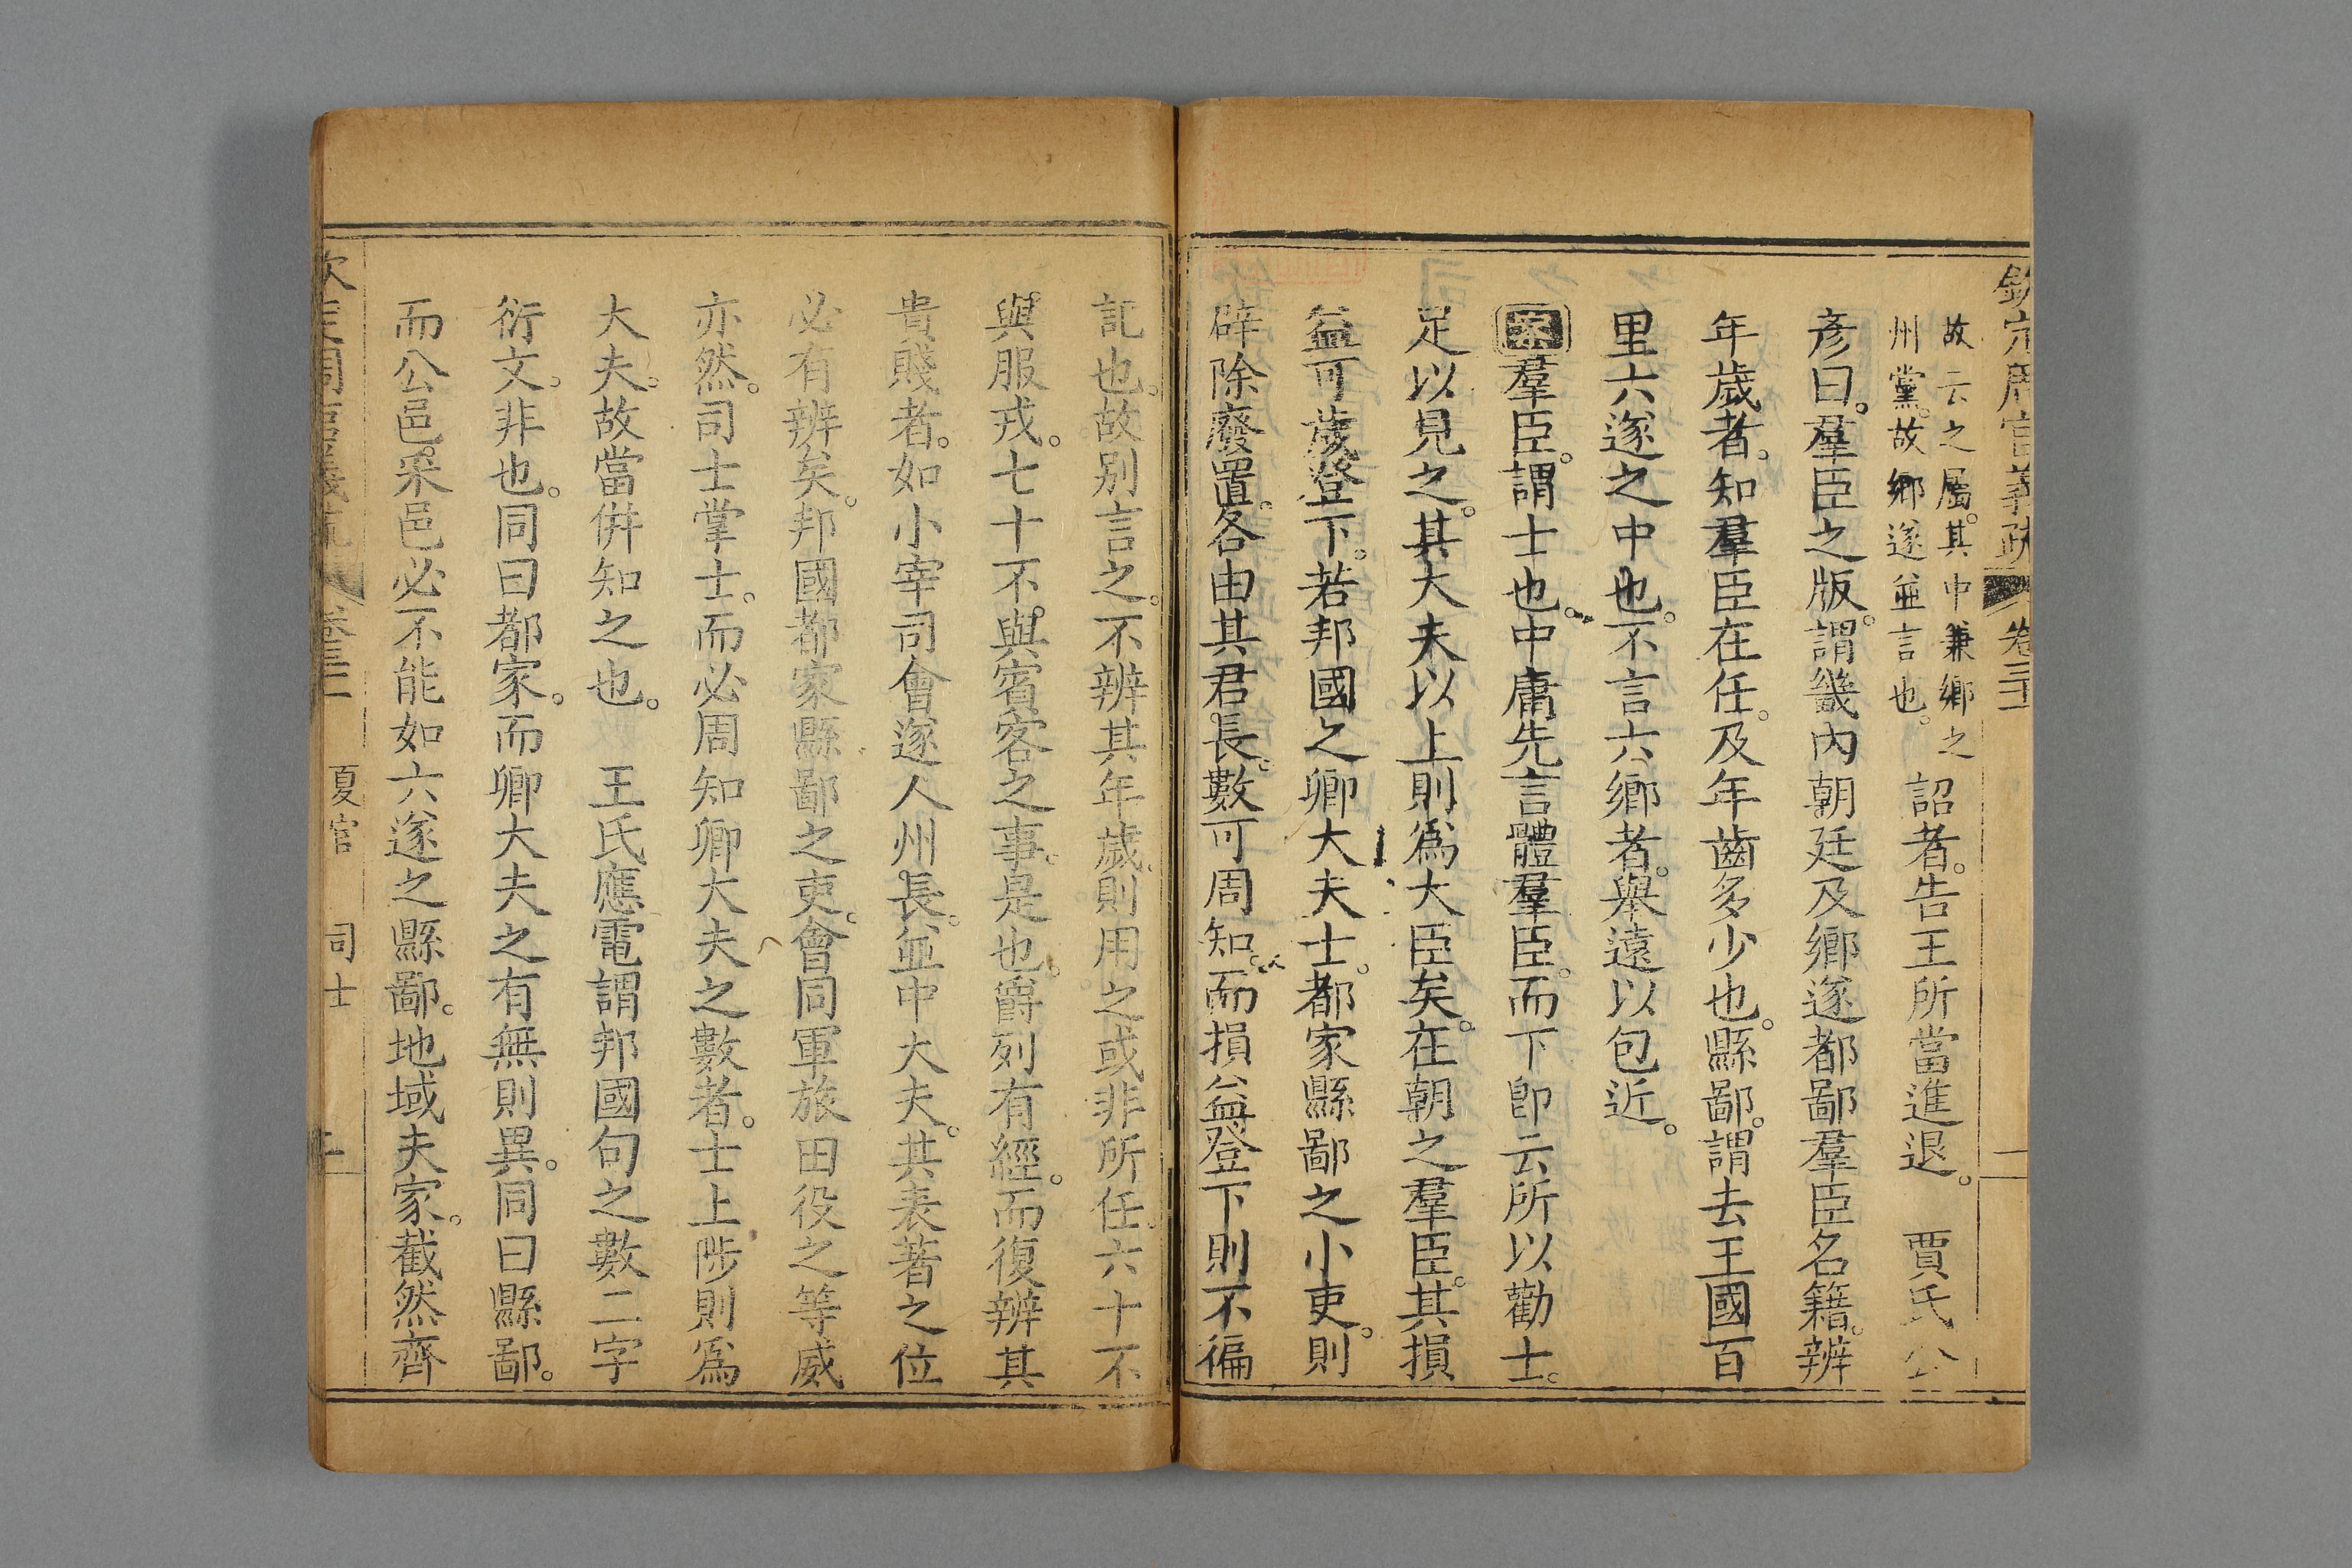 欽定周官義疏 卷三十一
故云之屬。其中兼鄉之
州黨。故鄉遂並言也。
詔者。告王所當進退。 賈氏公
彥曰。羣臣之版。謂畿內朝廷及鄉遂都鄙羣臣名籍。辨
年歲者。知羣臣在任。及年齒多少也。縣鄙。謂去王國百
里六遂之中也。不言六鄉者。舉遠以包近。
案羣臣。謂士也。中庸先言體羣臣。而下卽云所以勸士。
足以見之。其大夫以上則爲大臣矣。在朝之羣臣。其損
益可歲登下。若邦國之卿大夫士。都家縣鄙之小吏。則
辟除廢置。各由其君長。數可周知。而損益登下則不徧
記也。故别言之。不辨其年歲。則用之或非所任。六十不
與服戎。七十不與賓客之事。是也。爵列有經。而復辨其
貴賤者。如小宰司會遂人州長。並中大夫。其表著之位
必有辨矣。邦國都家縣鄙之吏。會同軍旅田役之等威
亦然。司士掌士。而必周知卿大夫之數者。士上陟則爲
大夫。故當倂知之也。 王氏應電謂邦國句之數二字
衍文。非也。同曰都家。而卿大夫之有無則異。同曰縣鄙。
而公邑。采邑必不能如六遂之縣鄙。地域夫家。截然齊
夏官 司士